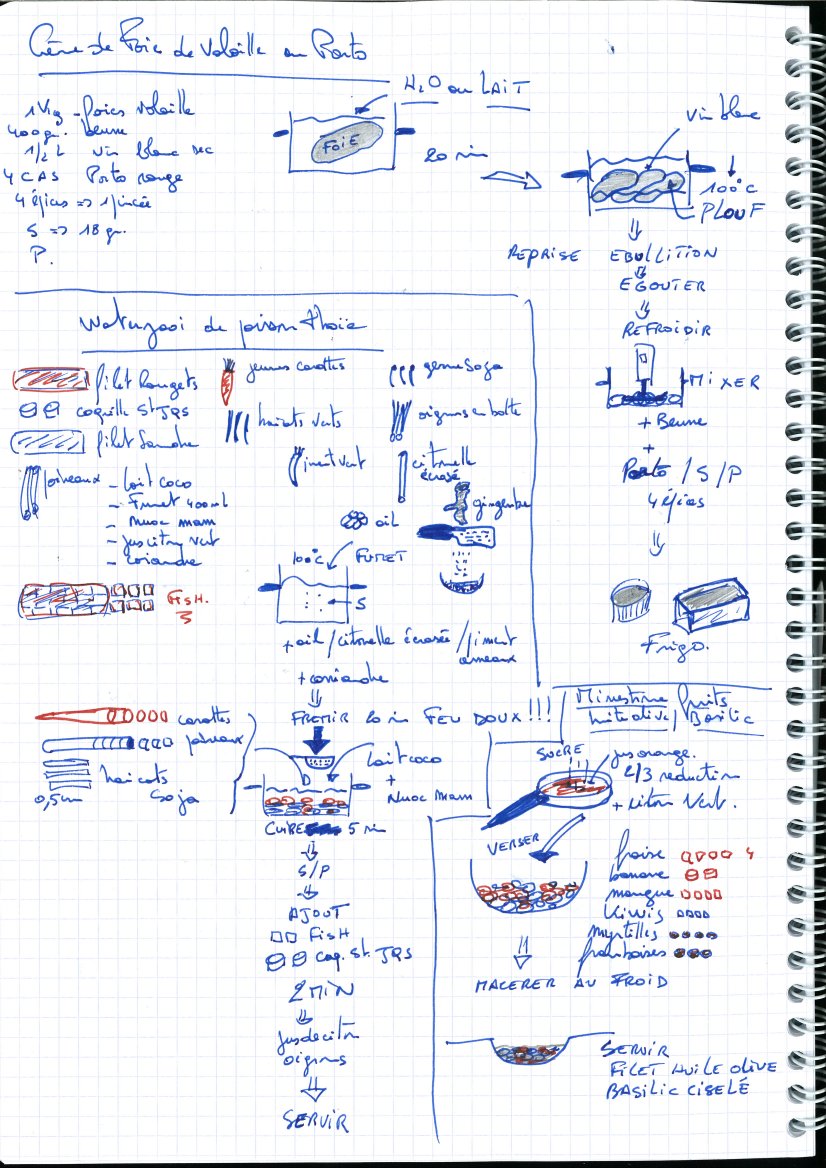 Crème de Foie de Volaille au Porto
H2O ou LAIT
1 kg foies volaille
400 gr. beurre
1/2 L vin blanc sec
4 CAS Porto rouge
4 épices => 1 pincée
S => 18 gr.
P.
FOIE
20 min
vin blanc
100°C
PLOUF
REPRISE EBULLITION
EGOUTER
REFROIDIR
MIXER
+ Beurre
+
Porto / S / P
4 épices
Frigo.
Waterzooi de poisson thaïe
filet Rougets
coquille St JQS
filet Sandre
poireaux
- lait coco
- Fumet 400 ml
- Nuoc mam
- jus citron vert
- coriandre
jeunes carottes
haricots verts
piment vert
germe soja
oignons en botte
citronelle
écrasé
gingembre
ail
FISH.
100°C
FUMET
S
+ ail / citronelle écrasée / piment
+ coriandre
FREMIR 20 min FEU DOUX !!!
carottes
poireaux
haricots
soja
0,5 cm
lait coco
+
Nuoc Mam
CUIRE 5 min
S/P
AJOUT
FISH
Coq. St. JQS
2 MIN
jus de citron
oignons
SERVIR
Minestrone fruits
huile olive / Basilic
SUCRE
jus orange.
2/3 reduction
+ citron Vert.
VERSER
fraise
banane
mangue
Kiwis
myrtilles
framboises
MACERER AU FROID
SERVIR
FILET HUILE OLIVE
BASILIC CISELÉ